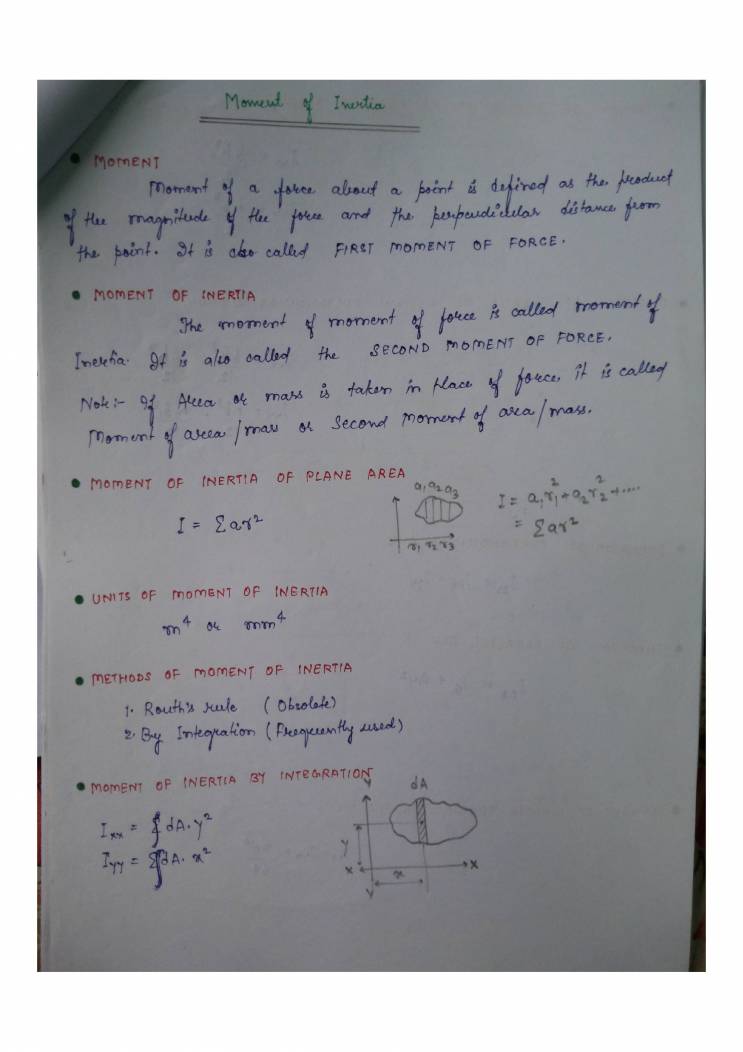 Moment of Inertia
• MOMENT
Moment of a force about a point is defined as the product
of the magnitude of the force and the perpendicular distance from
the point. It is also called FIRST MOMENT OF FORCE.
• MOMENT OF INERTIA
The moment of moment of force is called moment of
Inertia. It is also called the SECOND MOMENT OF FORCE.
Note:- If Area or mass is taken in place of force, it is called
Moment of area/mass or Second Moment of area/mass.
• MOMENT OF INERTIA OF PLANE AREA
I = Σar²
a₁ a₂ a₃
r₁ r₂ r₃
I = a₁r₁² + a₂r₂² + ....
= Σar²
• UNITS OF MOMENT OF INERTIA
m⁴ or mm⁴
• METHODS OF MOMENT OF INERTIA
1. Routh's rule (Obsolete)
2. By Integration (Frequently used)
• MOMENT OF INERTIA BY INTEGRATION
Ixx = ∫dA.y²
Iyy = ∫dA.x²
Y dA
y
X x X
Y